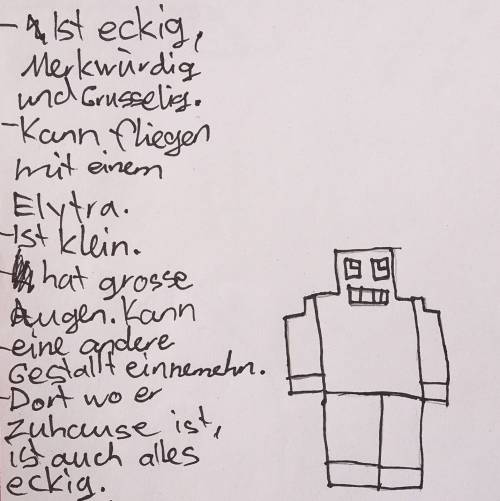 - Ist eckig,
Merkwürdig
und Grusselig.
- Kann fliegen
mit einem
Elytra.
- Ist klein.
- hat grosse
Augen. Kann
- eine andere
Gestallt einnemehn.
- Dort wo er
zuhause ist,
ist auch alles
eckig.